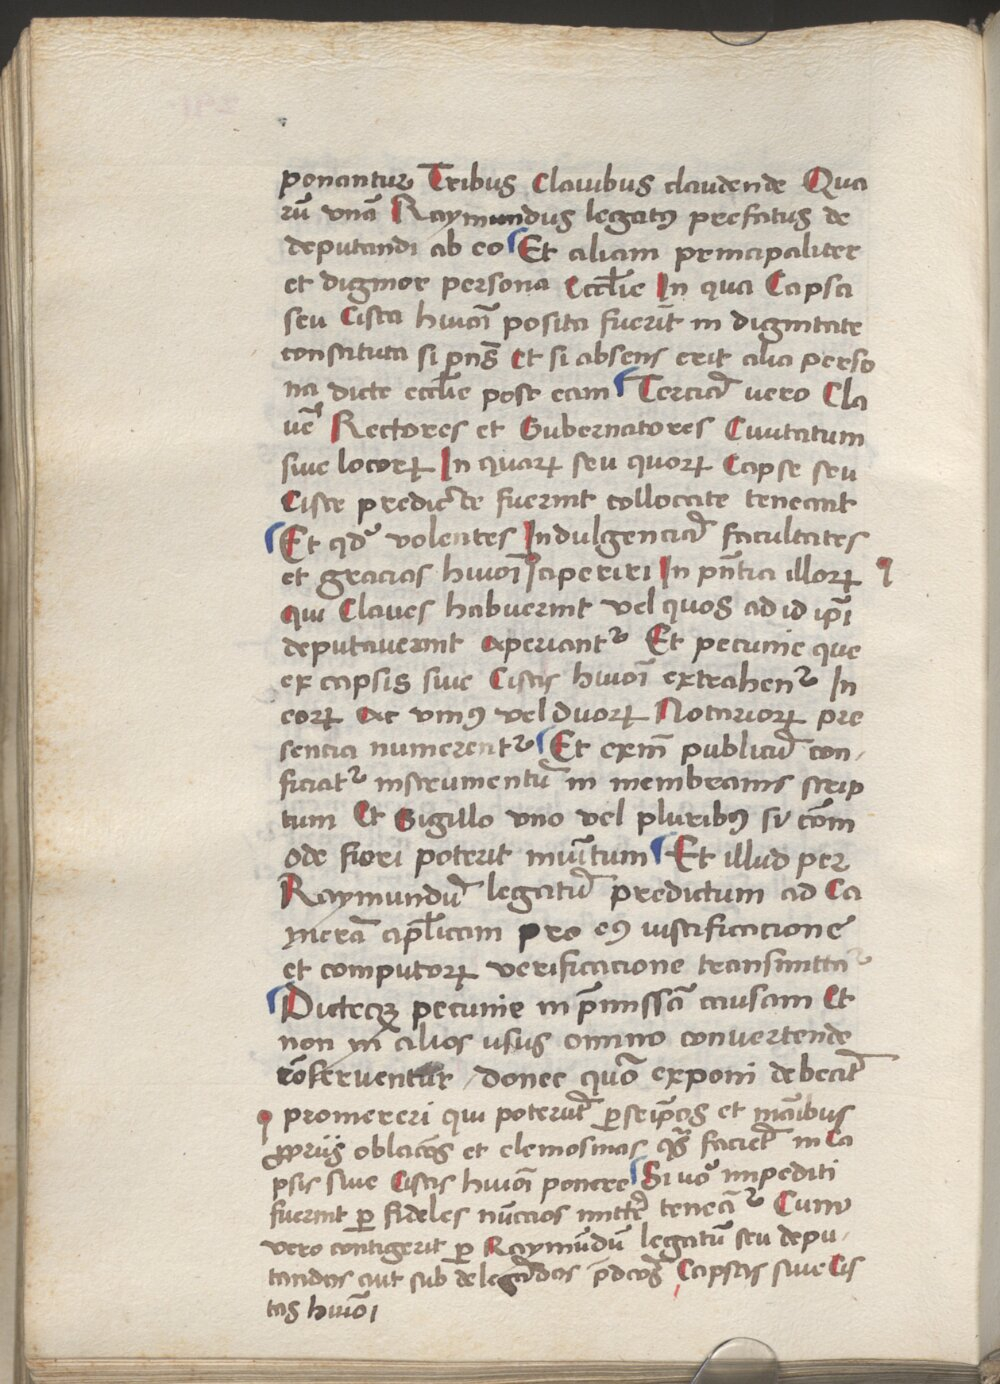 ponantur Tribus Clauibus claudende Qua
rũ vnã Raymundus legatꝰ prefatus de
deputandi ab eo Et aliam principaliter
et dignior persona Eccl̃ie In qua Capsa
seu Cista huiõi posita fuerit̃ in dignitate
constituta si p̃ns̃ Et si absens erit alia perso
na dicte eccl̃ie post eam Terciã vero Cla
uẽ Rectores et Gubernatores Ciuitatum
siue locorꝝ In quarꝝ seu quorꝝ Capse seu
Ciste predicte fuerint collocate teneant
Et qdõ volentes Indulgenciã facultates
et gracias huiõi aperiri In pñtia illorꝝ
qui Claues habuerint vel quos ad id ip̃i
deputauerint Aperiantᷣ Et pecunie que
ex capsis siue Cistis huiõi extrahenᷣ In
eorꝝ Ac vniꝰ vel duorꝝ Notariorꝝ pre
sencia numerentᷣ Et exin̄ publicũ con-
ficiatᷣ instrumentũ in membranis scrip
tum Et Sigillo vno vel pluribꝰ si cõm
ode fieri poterit munitum Et illud per
Raymundũ legatũ predictum ad Ca
merã ap̃licam pro eiꝰ iustificacione
et computorꝝ verificacione transmittaᷣ
Dicteqꝫ pecunie in p̃missã causam Et
non in alios usus omnino conuertende
cõseruentur / donec quõ exponi debeat̃
promereri qui poterũt ꝑ seip̃os et mãibus
ꝓpriis oblac̃oẽs et elemosinas qs̃ faciet̃ in Ca
psis siue Cistis huiõi ponere Si uõ impediti
fuerint ꝑ fideles nũccios mitte᷑ teneãᷣ Cum
vero contigerit ꝑ Raymũdũ legatũ seu depu-
tandos aut sub delegãdos p̃dc̃os Capsas siue Cis
tas huiõi